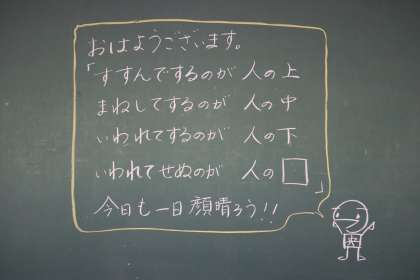 おはようございます。
「すすんでするのが 人の上
まねしてするのが 人の中
いわれてするのが 人の下
いわれてせぬのが 人の□」
今日も一日顔晴ろう!!